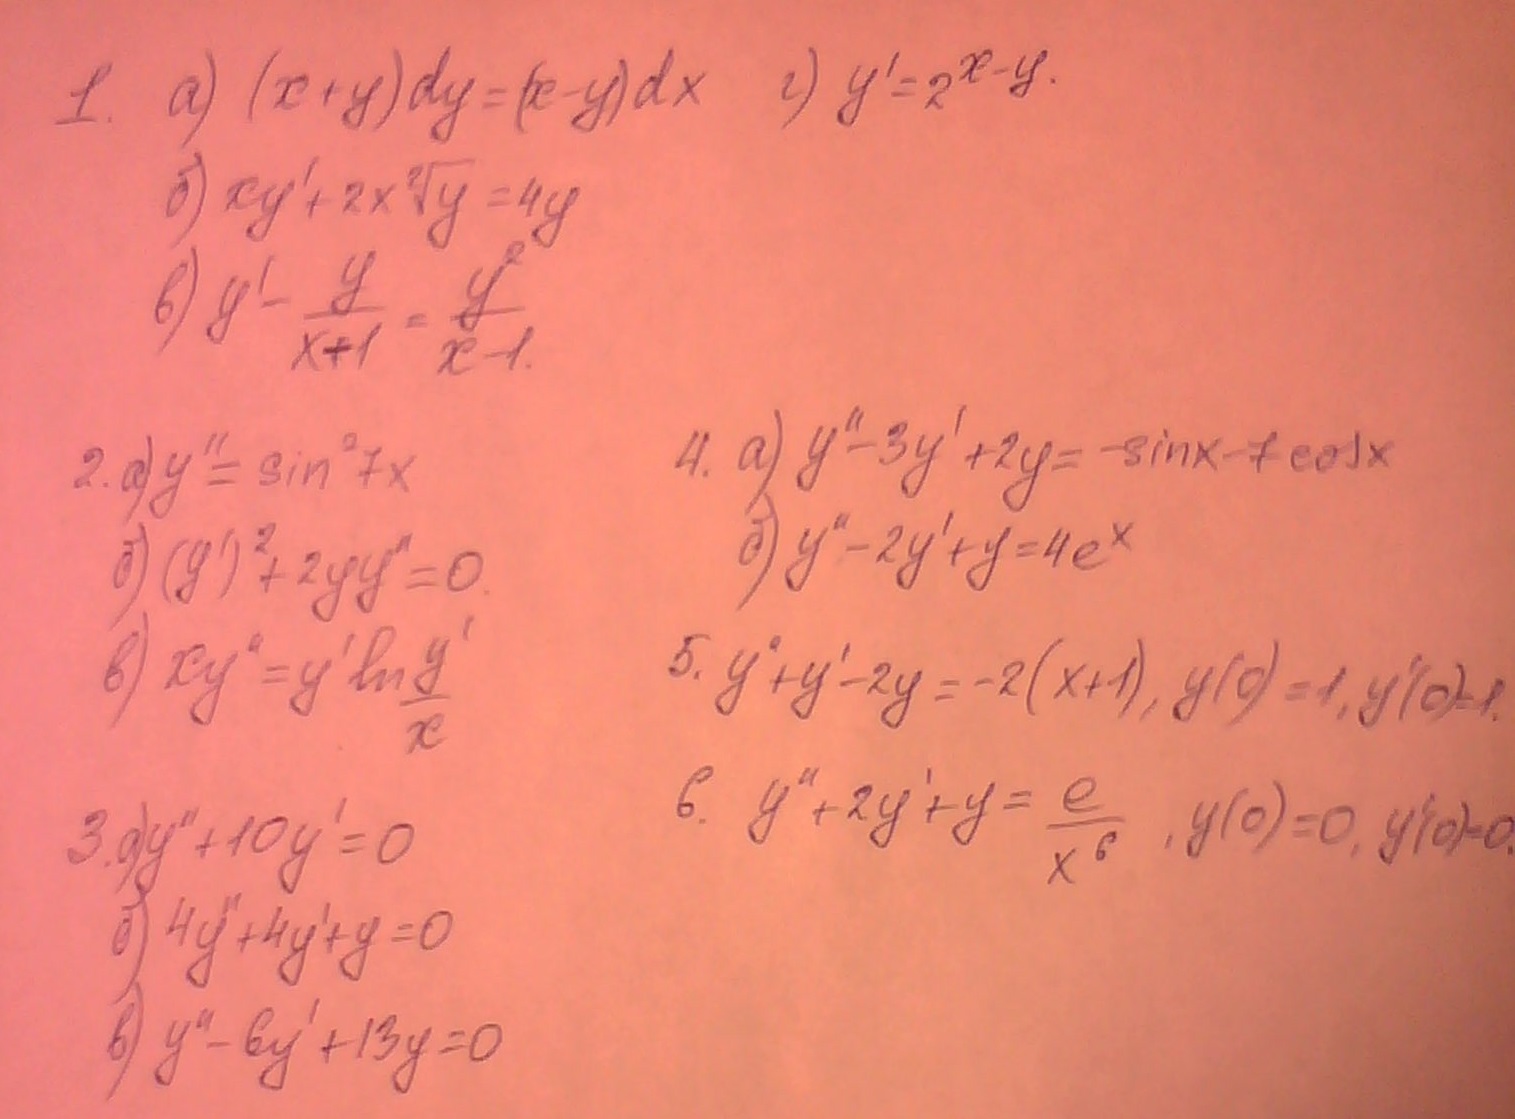 1. а) (x+y)dy=(x-y)dx г) y'=2^{x-y}.
б) xy'+2x²√y=4y
в) y'- y/(x+1) = y²/(x-1).
2. а) y''=sin²7x
б) (y')²+2yy''=0.
в) xy''=y'ln y'/x
3. а) y''+10y'=0
б) 4y''+4y'+y=0
в) y''-6y'+13y=0
4. а) y''-3y'+2y=-sinx-7cosx
б) y''-2y'+y=4e^x
5. y''+y'-2y=-2(x+1), y(0)=1, y'(0)=1.
6. y''+2y'+y= e/x⁶, y(0)=0, y'(0)=0.